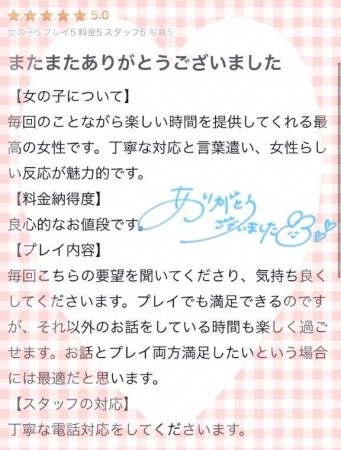 ★★★★★ 5.0
女の子5 プレイ5 料金5 スタッフ5 写真5
またまたありがとうございました
【女の子について】
毎回のことながら楽しい時間を提供してくれる最
高の女性です。丁寧な対応と言葉遣い、女性らし
い反応が魅力的です。
【料金納得度】
良心的なお値段です。
ありがとう
ございました
【プレイ内容】
毎回こちらの要望を聞いてくださり、気持ち良く
してくださいます。プレイでも満足できるのです
が、それ以外のお話をしている時間も楽しく過ご
せます。お話とプレイ両方満足したいという場合
には最適だと思います。
【スタッフの対応】
丁寧な電話対応をしてくださいます。